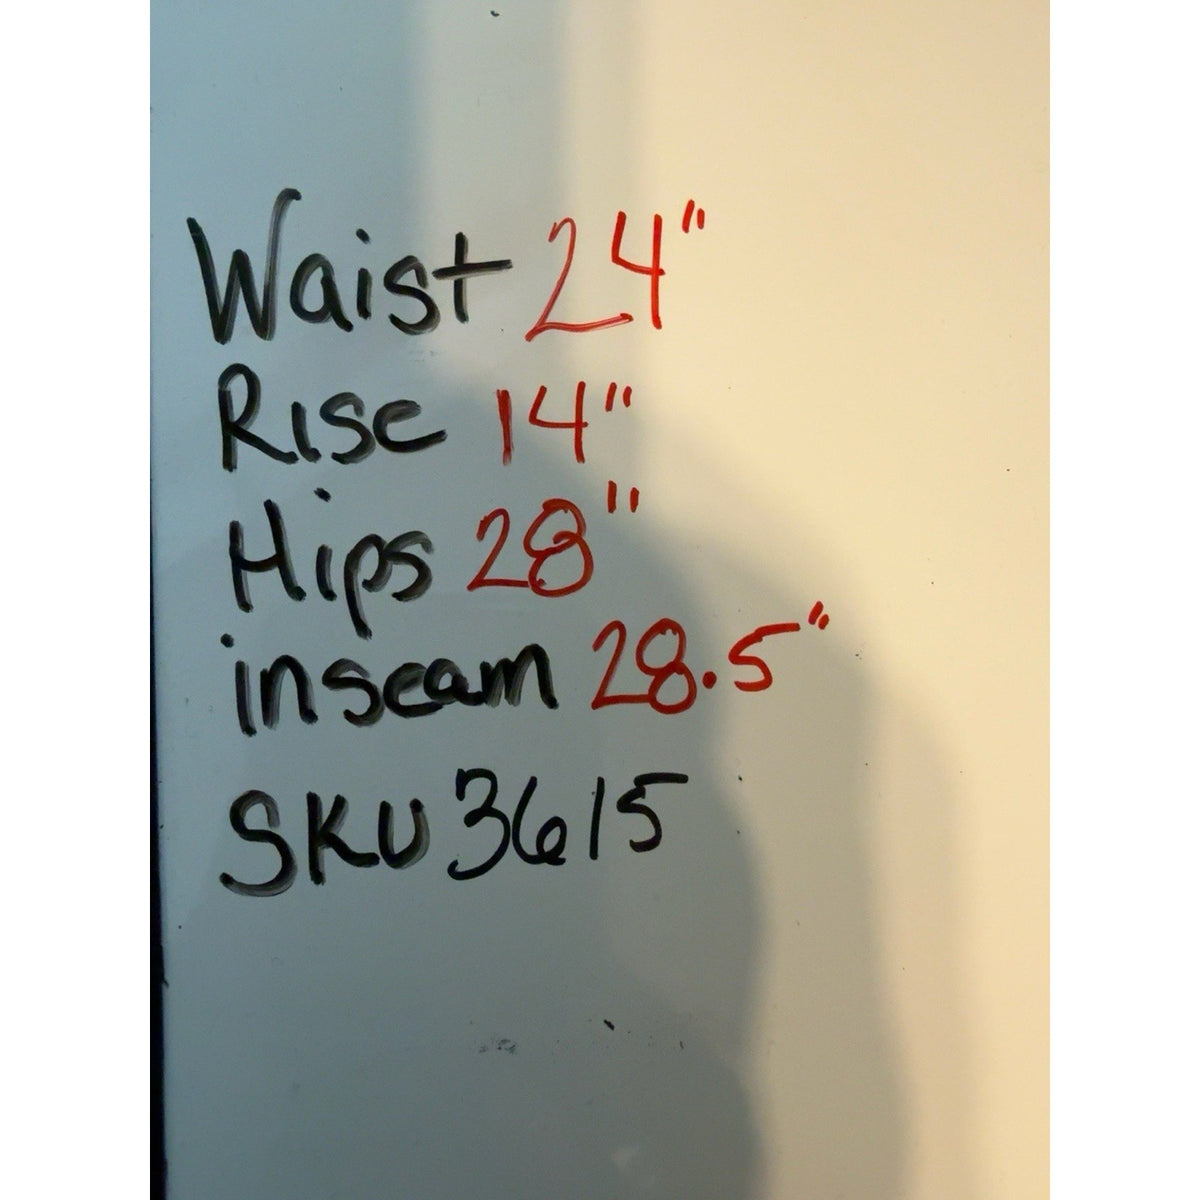 Waist 24"
Rise 14"
Hips 28"
inseam 28.5"
SKU 3615